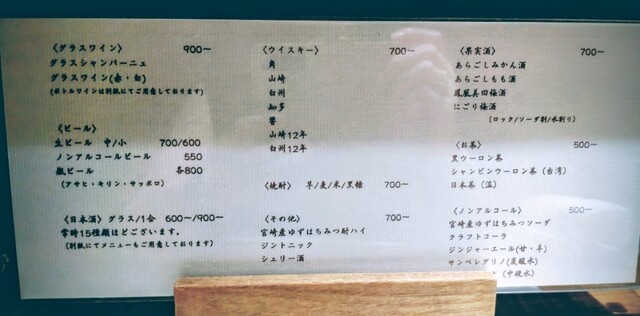 〈グラスワイン〉 900〜
グラスシャンパーニュ
グラスワイン(赤・白)
(ボトルワインは別紙にてご用意しております)
〈ビール〉
生ビール 中/小 700/600
ノンアルコールビール 550
瓶ビール 各800
(アサヒ・キリン・サッポロ)
〈日本酒〉グラス/1合 600〜/900〜
常時15種類ほどございます。
(別紙にてメニューもご用意しております)
〈ウイスキー〉 700〜
角
山崎
白州
知多
響
山崎12年
白州12年
〈焼酎〉 芋/麦/米/黒糖 700〜
〈その他〉 700〜
宮崎産ゆずはちみつ酎ハイ
ジントニック
シェリー酒
〈果実酒〉 700〜
あらごしみかん酒
あらごしもも酒
鳳凰美田梅酒
にごり梅酒
(ロック/ソーダ割/水割り)
〈お茶〉 500〜
黒ウーロン茶
シャンピンウーロン茶(台湾)
日本茶(温)
〈ノンアルコール〉 500〜
宮崎産ゆずはちみつソーダ
クラフトコーラ
ジンジャーエール(甘・辛)
サンペレグリノ(炭酸水)
(中硬水)